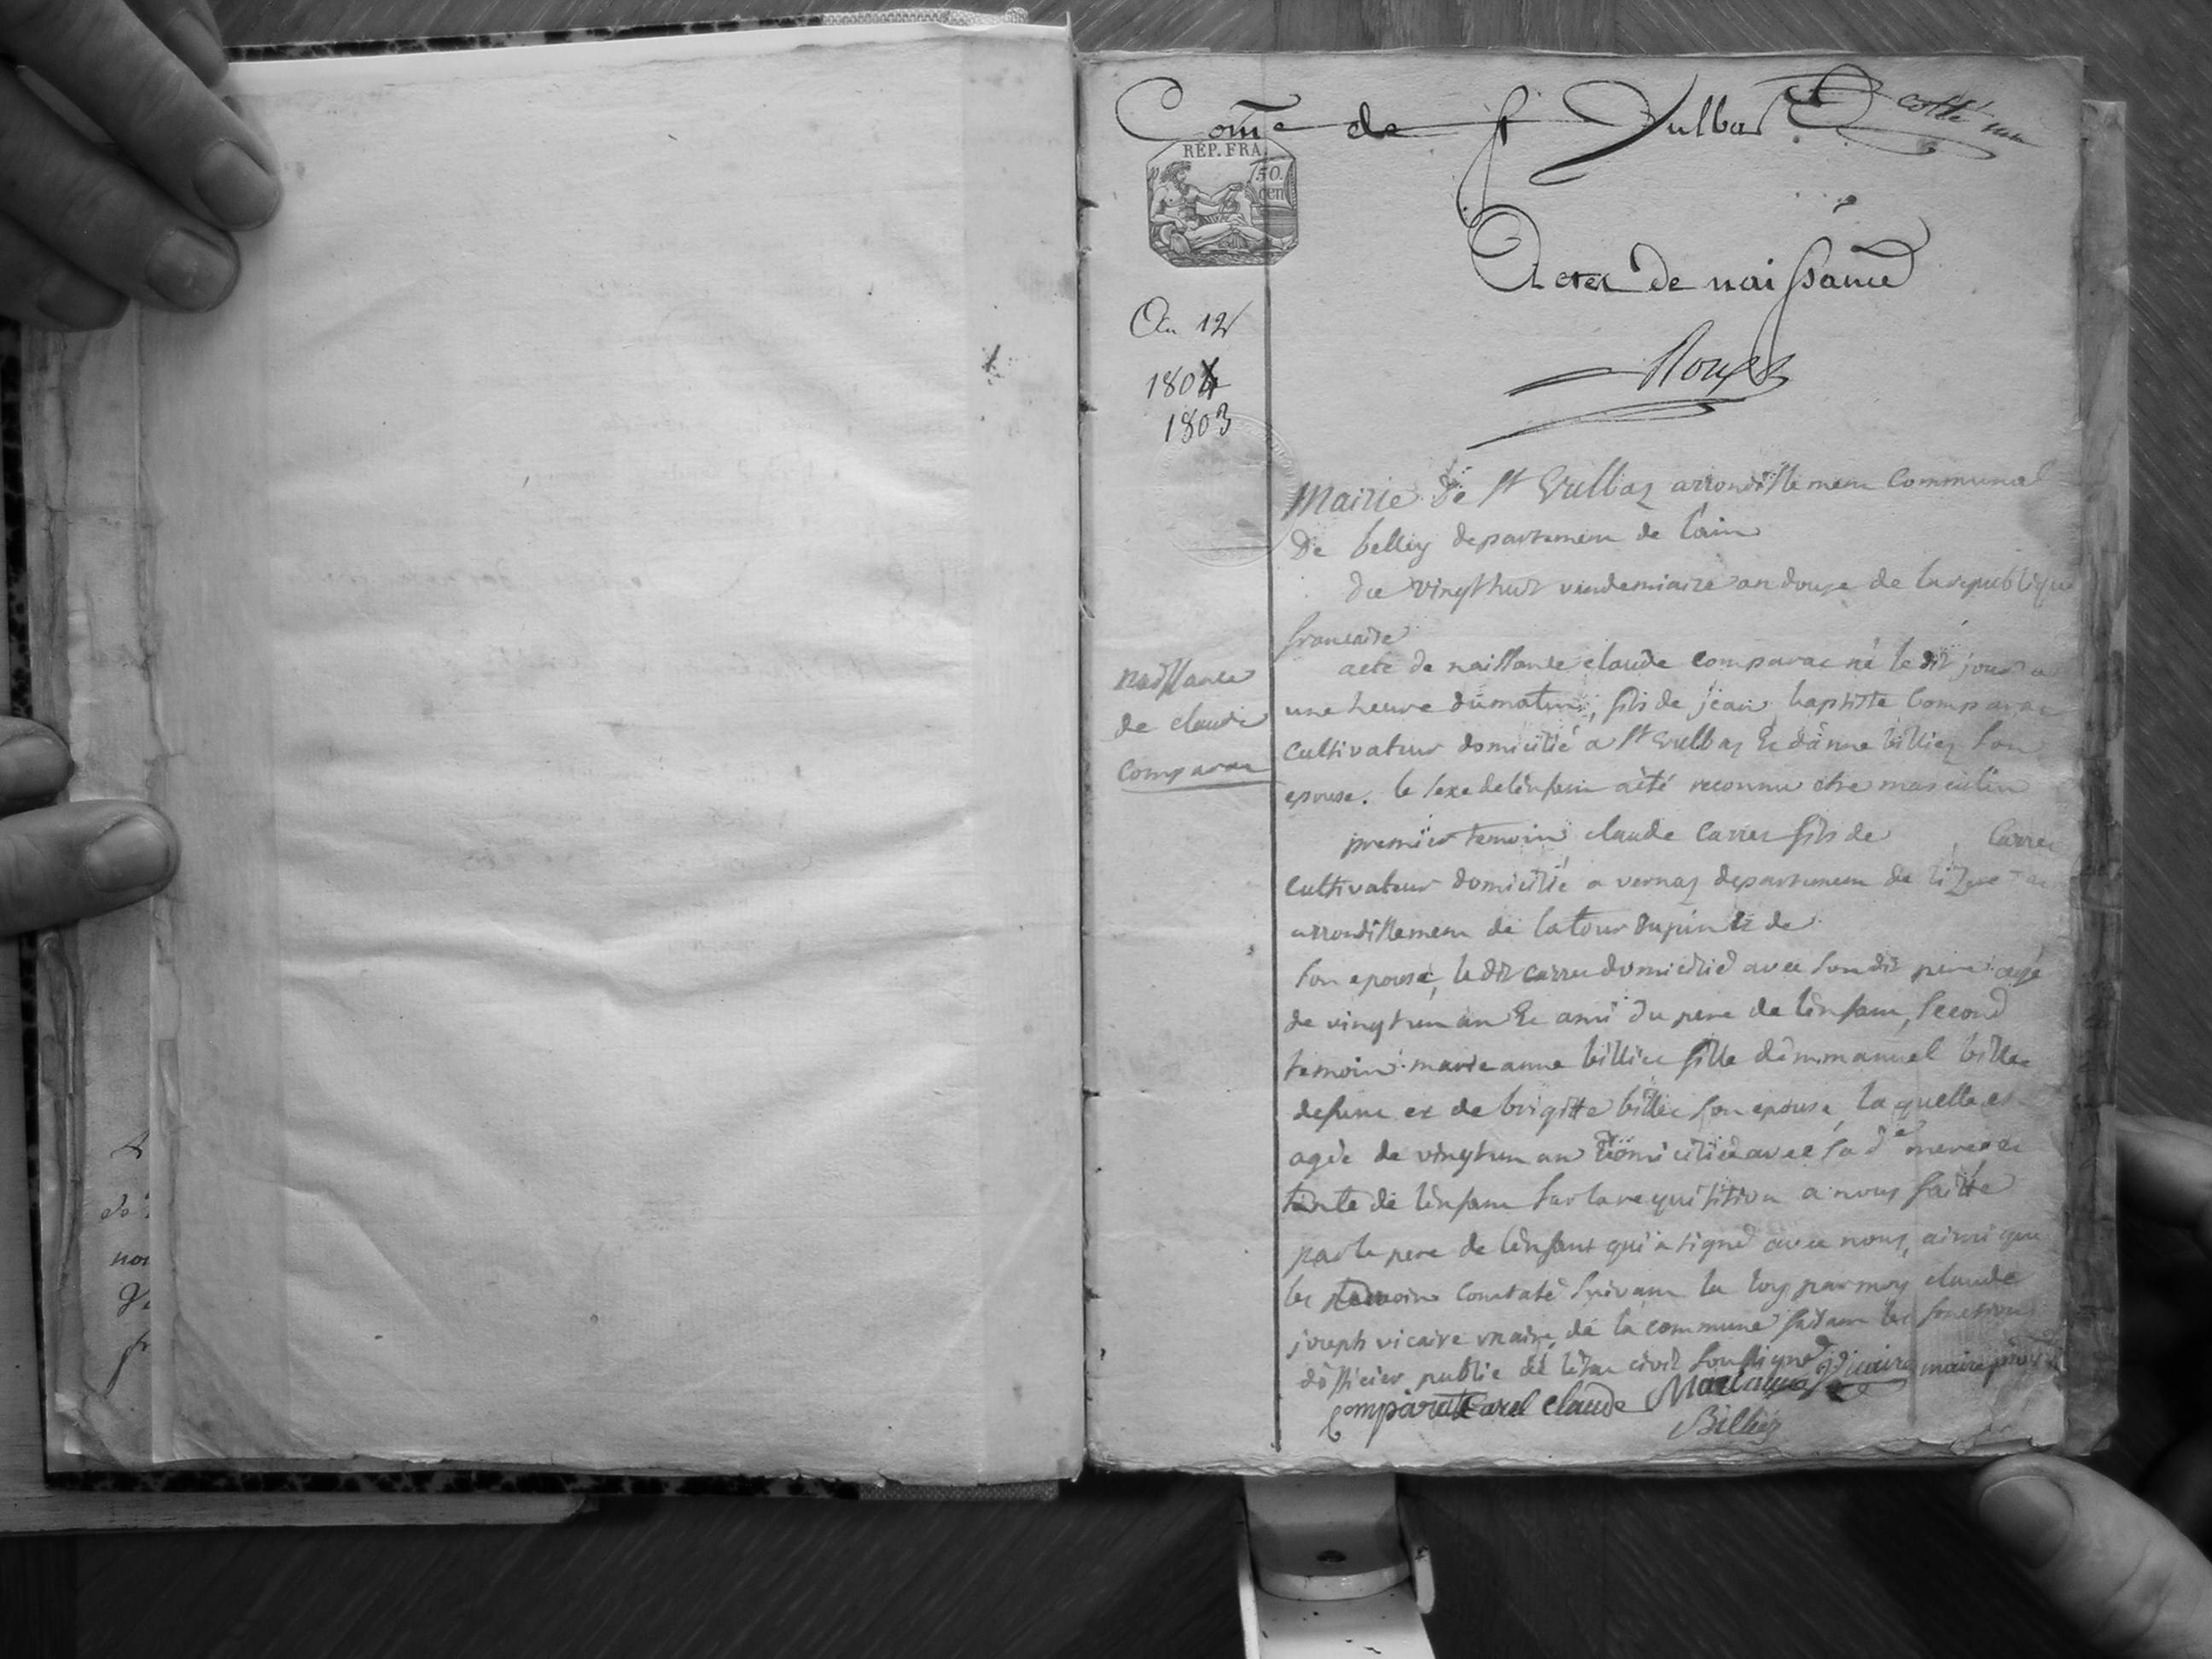 Com̃e de St Vulbas
cotté un
REP. FRA.
50.
cen
Actes de naissance
An 12
1804
1803
Mairie de St Vulbas arrondissement Communal
De belley departement de lain
du vingthuit vendemiaire an douze de la republique
francaise
acte de naissance claude comparat né le dit jour a
une heure du matin, fils de jean baptiste Comparat
naissance
de claude
Comparat
cultivateur domicilié a St Vulbas Et danne billiez son
epouse. le sexe de lenfant aèté reconnu etre masculin
premier temoin claude Carrer fils de Carrer
cultivateur domicilié a vernas departement de lizere
arrondissement de latour dupin Et de
son epouse, le dit carrer domicilié avec son dit pere agé
de vingt un an Et ami du pere de lenfant, second
temoin marie anne billiez fille dèmmanuel billiez
defunt et de brigitte billiez son epouse, la quelle est
agée de vingt un an domiciliée avec sa de mere et
tante de lenfant sur la requisition a nous faitte
par le pere de lenfant qui a signé avec nous, ainsi que
les temoins Constaté suivant la loy par moy claude
joseph vicaire maire de la commune faisant les fonctions
dofficier public de letat civil soussigné
vicaire maire
Comparat Carel claude Marianne
Billiez